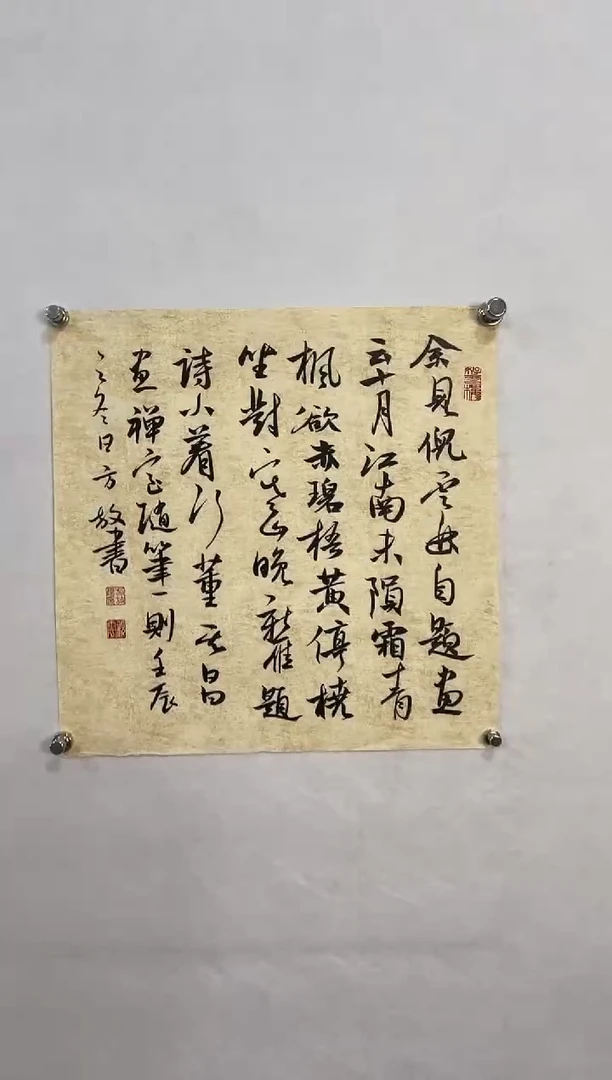 余見倪雲林自題畫
云十月江南未隕霜青
楓欲赤碧梧黃停橈
坐對山晚新雁題
詩小着行董其昌
畫禅室隨筆一則壬辰
之冬日方放書